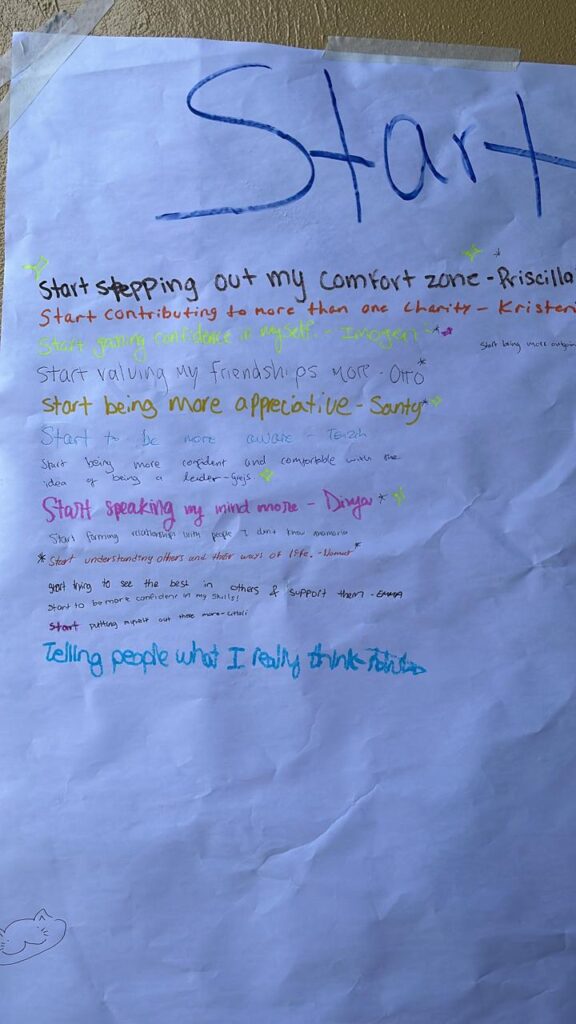 Start
Start stepping out my comfort zone - Priscilla
Start contributing to more than one charity - Kristen
Start gaining confidence in myself. - Imogen
Start being more outgoin
Start valuing my friendships more - Otto
Start being more appreciative - Santy
Start to be more aware - Tenzin
Start being more confident and comfortable with the
idea of being a leader -
Start speaking my mind more - Divya
Start forming relationships with people I don't know
Start understanding others and their ways of life. -
Start trying to see the best in others & support them - Emma
Start to be more confident in my skills!
Start putting myself out there more -
Telling people what I really think -